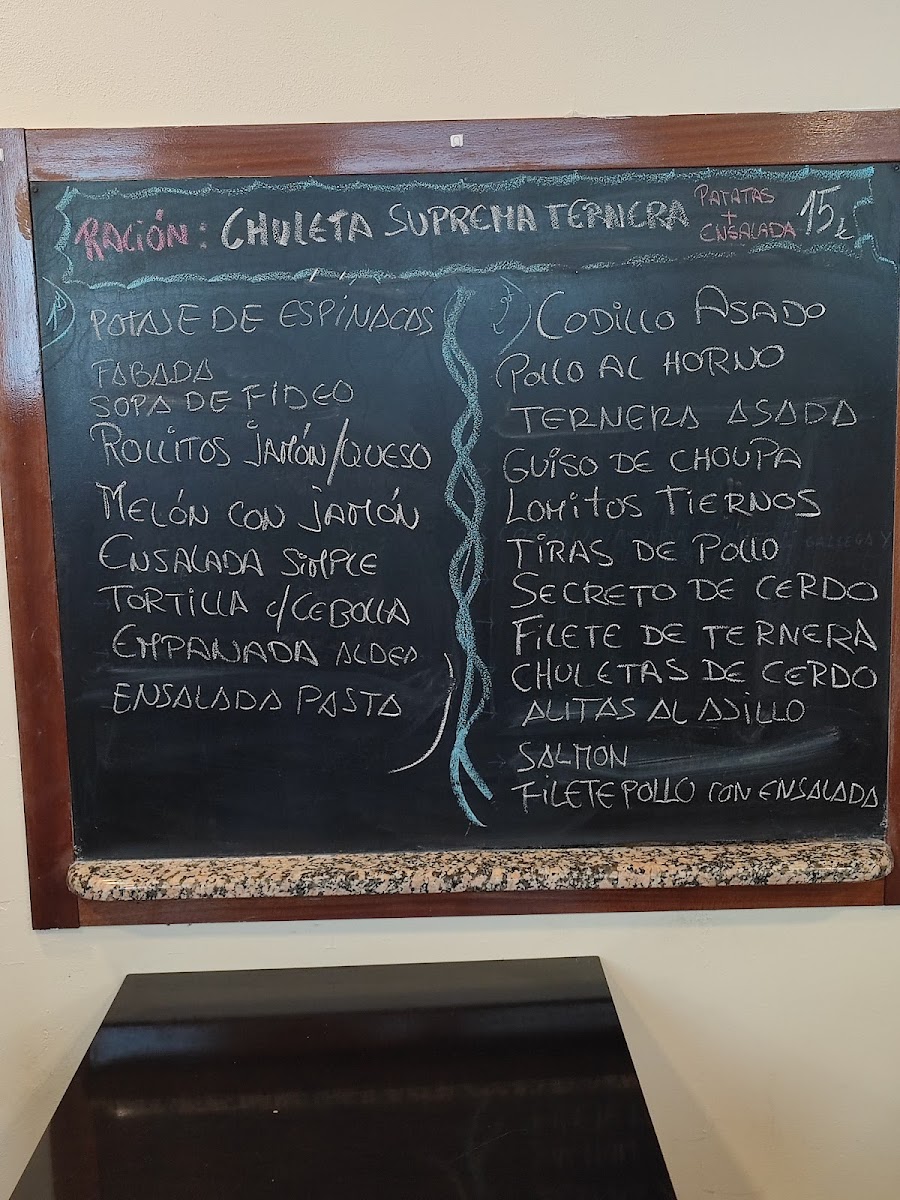 RACIÓN: CHULETA SUPREMA TERNERA PATATAS + ENSALADA 15€
POTAJE DE ESPINACAS
FABADA
SOPA DE FIDEO
ROLLITOS JAMÓN/QUESO
MELÓN CON JAMÓN
ENSALADA SIMPLE
TORTILLA C/CEBOLLA
EMPANADA ALDEA
ENSALADA PASTA
CODILLO ASADO
POLLO AL HORNO
TERNERA ASADA
GUISO DE CHOUPA
LOMITOS TIERNOS
TIRAS DE POLLO
SECRETO DE CERDO
FILETE DE TERNERA
CHULETAS DE CERDO
ALITAS AL AJILLO
SALMON
FILETE POLLO CON ENSALADA